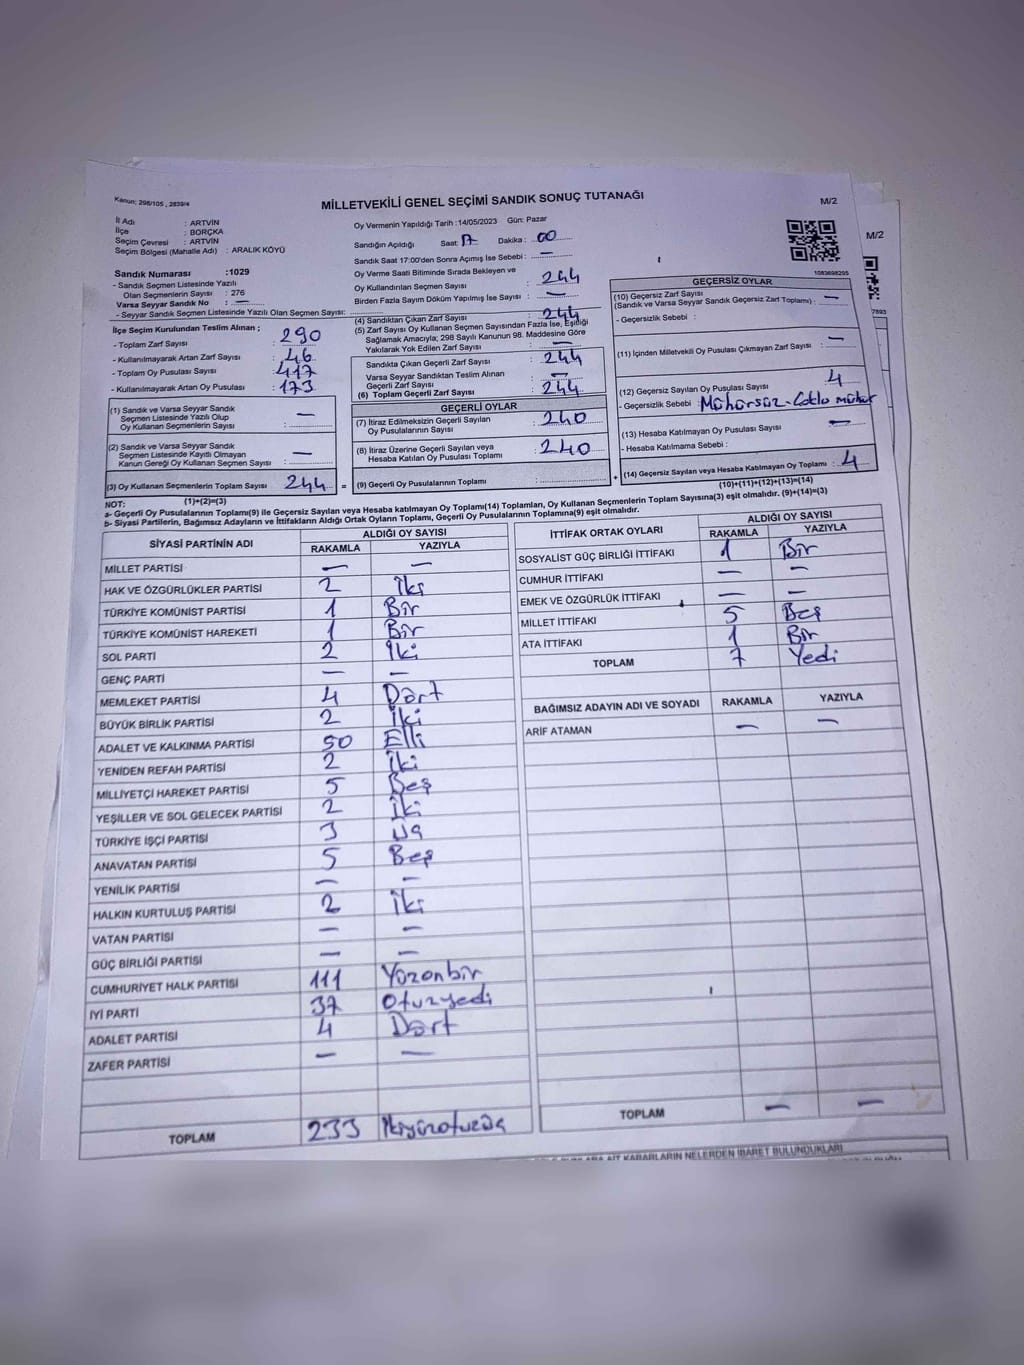 Kanun: 298/105 , 2839/4
MİLLETVEKİLİ GENEL SEÇİMİ SANDIK SONUÇ TUTANAĞI
M/2
M/2
İl Adı : ARTVİN
İlçe : BORÇKA
Seçim Çevresi : ARTVİN
Seçim Bölgesi (Mahalle Adı) : ARALIK KÖYÜ
Sandık Numarası :1029
- Sandık Seçmen Listesinde Yazılı
Olan Seçmenlerin Sayısı : 276
Varsa Seyyar Sandık No : —
- Seyyar Sandık Seçmen Listesinde Yazılı Olan Seçmen Sayısı:
İlçe Seçim Kurulundan Teslim Alınan ;
- Toplam Zarf Sayısı : 290
- Kullanılmayarak Artan Zarf Sayısı : 46
- Toplam Oy Pusulası Sayısı : 417
- Kullanılmayarak Artan Oy Pusulası : 173
(1) Sandık ve Varsa Seyyar Sandık
Seçmen Listesinde Yazılı Olup
Oy Kullanan Seçmenlerin Sayısı : —
(2) Sandık ve Varsa Seyyar Sandık
Seçmen Listesinde Kayıtlı Olmayan
Kanun Gereği Oy Kullanan Seçmen Sayısı : —
(3) Oy Kullanan Seçmenlerin Toplam Sayısı : 244 =
(1)+(2)=(3)
Oy Vermenin Yapıldığı Tarih :14/05/2023 Gün: Pazar
Sandığın Açıldığı Saat: 17 Dakika : 00
Sandık Saat 17:00'den Sonra Açımış İse Sebebi : —
Oy Verme Saati Bitiminde Sırada Bekleyen ve
Oy Kullandırılan Seçmen Sayısı : 244
Birden Fazla Sayım Döküm Yapılmış İse Sayısı : —
(4) Sandıktan Çıkan Zarf Sayısı : 244
(5) Zarf Sayısı Oy Kullanan Seçmen Sayısından Fazla İse, Eşitliği
Sağlamak Amacıyla; 298 Sayılı Kanunun 98. Maddesine Göre
Yakılarak Yok Edilen Zarf Sayısı : —
Sandıkta Çıkan Geçerli Zarf Sayısı : 244
Varsa Seyyar Sandıktan Teslim Alınan
Geçerli Zarf Sayısı : —
(6) Toplam Geçerli Zarf Sayısı : 244
GEÇERLİ OYLAR
(7) İtiraz Edilmeksizin Geçerli Sayılan
Oy Pusulalarının Sayısı : 240
(8) İtiraz Üzerine Geçerli Sayılan veya
Hesaba Katılan Oy Pusulası Toplamı : 240
(9) Geçerli Oy Pusulalarının Toplamı : +
1083698295
GEÇERSİZ OYLAR
(10) Geçersiz Zarf Sayısı
(Sandık ve Varsa Seyyar Sandık Geçersiz Zarf Toplamı) : —
- Geçersizlik Sebebi :
(11) İçinden Milletvekili Oy Pusulası Çıkmayan Zarf Sayısı : —
(12) Geçersiz Sayılan Oy Pusulası Sayısı : 4
- Geçersizlik Sebebi : Mühürsüz-Çoklu mühür
(13) Hesaba Katılmayan Oy Pusulası Sayısı : —
- Hesaba Katılmama Sebebi :
(14) Geçersiz Sayılan veya Hesaba Katılmayan Oy Toplamı : 4
(10)+(11)+(12)+(13)=(14)
NOT:
a- Geçerli Oy Pusulalarının Toplamı(9) ile Geçersiz Sayılan veya Hesaba katılmayan Oy Toplamı(14) Toplamları, Oy Kullanan Seçmenlerin Toplam Sayısına(3) eşit olmalıdır. (9)+(14)=(3)
b- Siyasi Partilerin, Bağımsız Adayların ve İttifakların Aldığı Ortak Oyların Toplamı, Geçerli Oy Pusulalarının Toplamına(9) eşit olmalıdır.
SİYASİ PARTİNİN ADI ALDIĞI OY SAYISI
RAKAMLA YAZIYLA
MİLLET PARTİSİ — —
HAK VE ÖZGÜRLÜKLER PARTİSİ 2 İki
TÜRKİYE KOMÜNİST PARTİSİ 1 Bir
TÜRKİYE KOMÜNİST HAREKETİ 1 Bir
SOL PARTİ 2 İki
GENÇ PARTİ — —
MEMLEKET PARTİSİ 4 Dört
BÜYÜK BİRLİK PARTİSİ 2 İki
ADALET VE KALKINMA PARTİSİ 50 Elli
YENİDEN REFAH PARTİSİ 2 İki
MİLLİYETÇİ HAREKET PARTİSİ 5 Beş
YEŞİLLER VE SOL GELECEK PARTİSİ 2 İki
TÜRKİYE İŞÇİ PARTİSİ 3 Üç
ANAVATAN PARTİSİ 5 Beş
YENİLİK PARTİSİ — —
HALKIN KURTULUŞ PARTİSİ 2 İki
VATAN PARTİSİ — —
GÜÇ BİRLİĞİ PARTİSİ — —
CUMHURİYET HALK PARTİSİ 111 Yüzonbir
İYİ PARTİ 37 Otuzyedi
ADALET PARTİSİ 4 Dört
ZAFER PARTİSİ — —
TOPLAM 233 İkiyüzotuzüç
İTTİFAK ORTAK OYLARI ALDIĞI OY SAYISI
RAKAMLA YAZIYLA
SOSYALİST GÜÇ BİRLİĞİ İTTİFAKI 1 Bir
CUMHUR İTTİFAKI — —
EMEK VE ÖZGÜRLÜK İTTİFAKI — —
MİLLET İTTİFAKI 5 Beş
ATA İTTİFAKI 1 Bir
TOPLAM 7 Yedi
BAĞIMSIZ ADAYIN ADI VE SOYADI RAKAMLA YAZIYLA
ARİF ATAMAN — —
TOPLAM — —
KARARLARIN NELERDEN İBARET BULUNDUKLARI